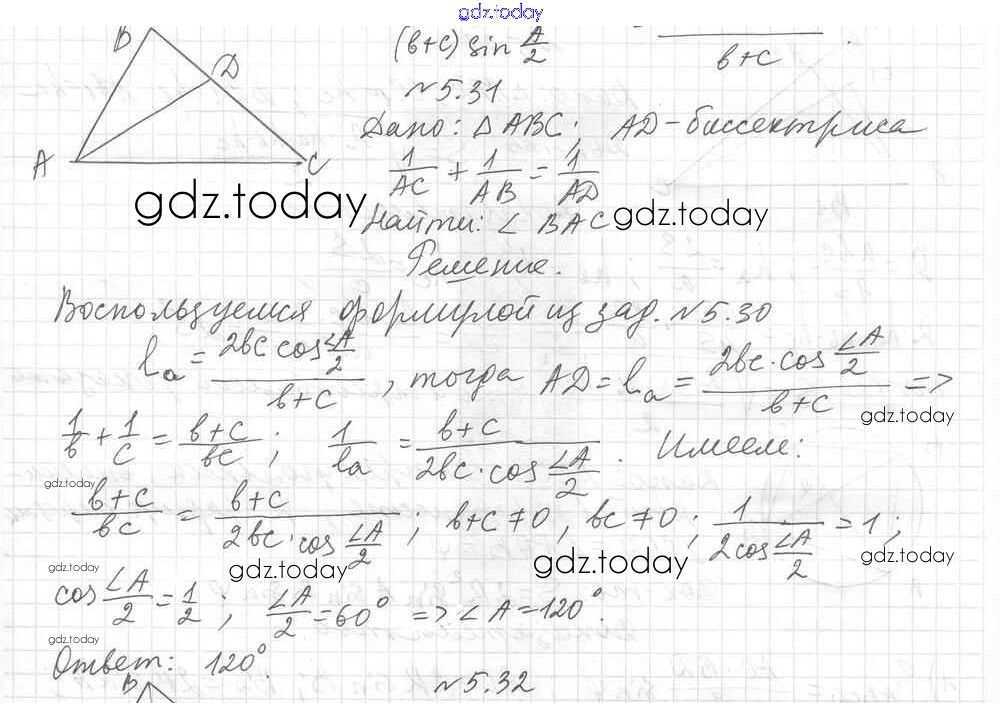 gdz.today
(b+c) sin A/2
b+c
№5.31
B
D
A
C
Дано: △ABC; AD-биссектриса
1/AC + 1/AB = 1/AD
gdz.today
Найти: ∠BAC gdz.today
Решение.
Воспользуемся формулой из зад. №5.30
lₐ = 2bc cos ∠A/2 / b+c, тогда AD = lₐ = 2bc·cos ∠A/2 / b+c =>
gdz.today
1/b + 1/c = b+c / bc; 1/lₐ = b+c / 2bc·cos ∠A/2. Имеем:
gdz.today
b+c / bc = b+c / 2bc·cos ∠A/2; b+c≠0, bc≠0; 1 / 2cos ∠A/2 = 1;
gdz.today gdz.today gdz.today gdz.today
cos ∠A/2 = 1/2, ∠A/2 = 60° => ∠A = 120°.
gdz.today
Ответ: 120°.
B
№5.32